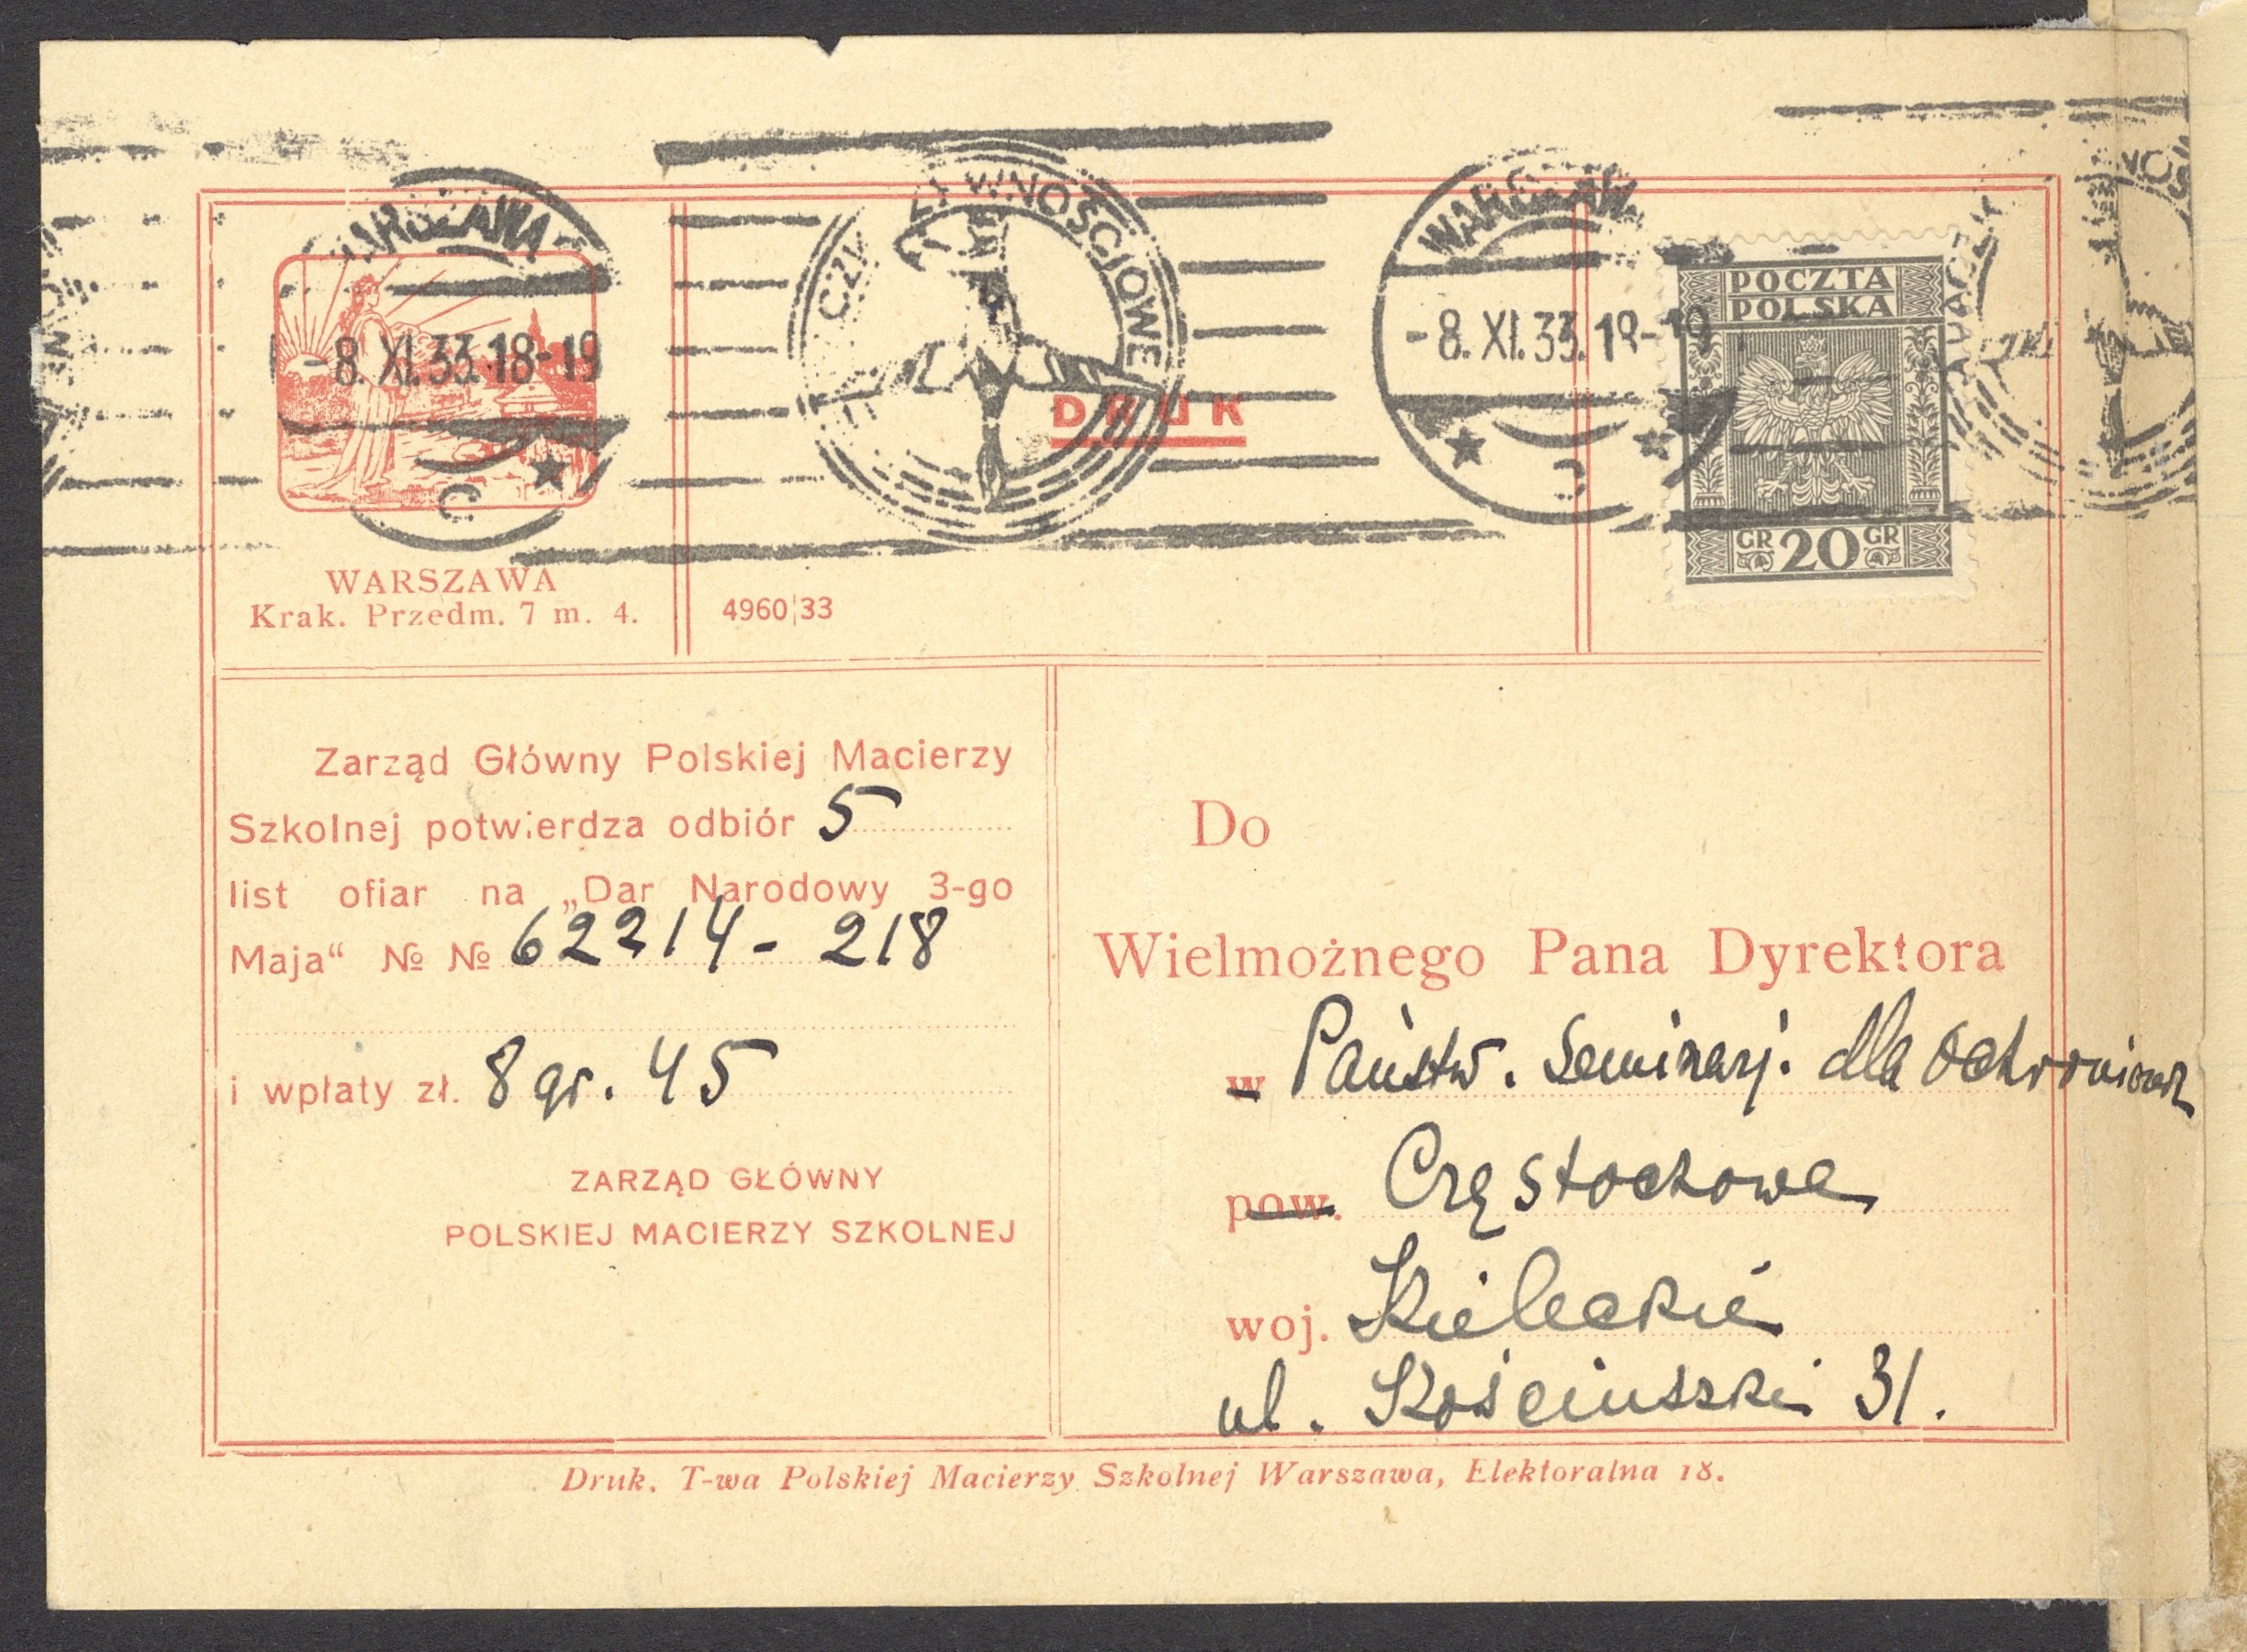 WARSZAWA
-8. XI. 33. 18-19
ŻYWNOŚCIOWE
WARSZAWA
-8. XI. 33. 18-19
POCZTA
POLSKA
GR 20 GR
DRUK
WARSZAWA
Krak. Przedm. 7 m. 4.
4960|33
Zarząd Główny Polskiej Macierzy
Szkolnej potwierdza odbiór 5
list ofiar na „Dar Narodowy 3-go
Maja“ № № 62214 - 218
i wpłaty zł. 8 gr. 45
ZARZĄD GŁÓWNY
POLSKIEJ MACIERZY SZKOLNEJ
Do
Wielmożnego Pana Dyrektora
w Państw. Seminarj. dla
pow. Częstochowa
woj. Kieleckie
ul. Kościuszki 31.
Druk. T-wa Polskiej Macierzy Szkolnej Warszawa, Elektoralna 18.